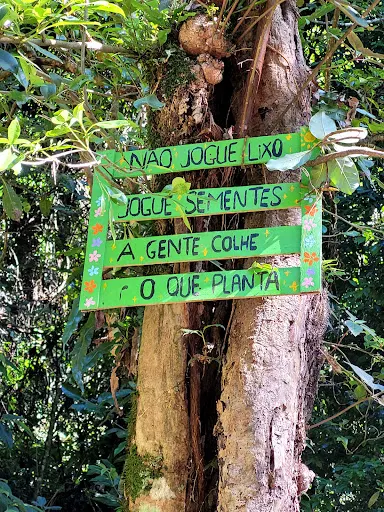 NÃO JOGUE LiXO
JOGUE SEMENTES
A GENTE COLHE
O QUE PLANTA